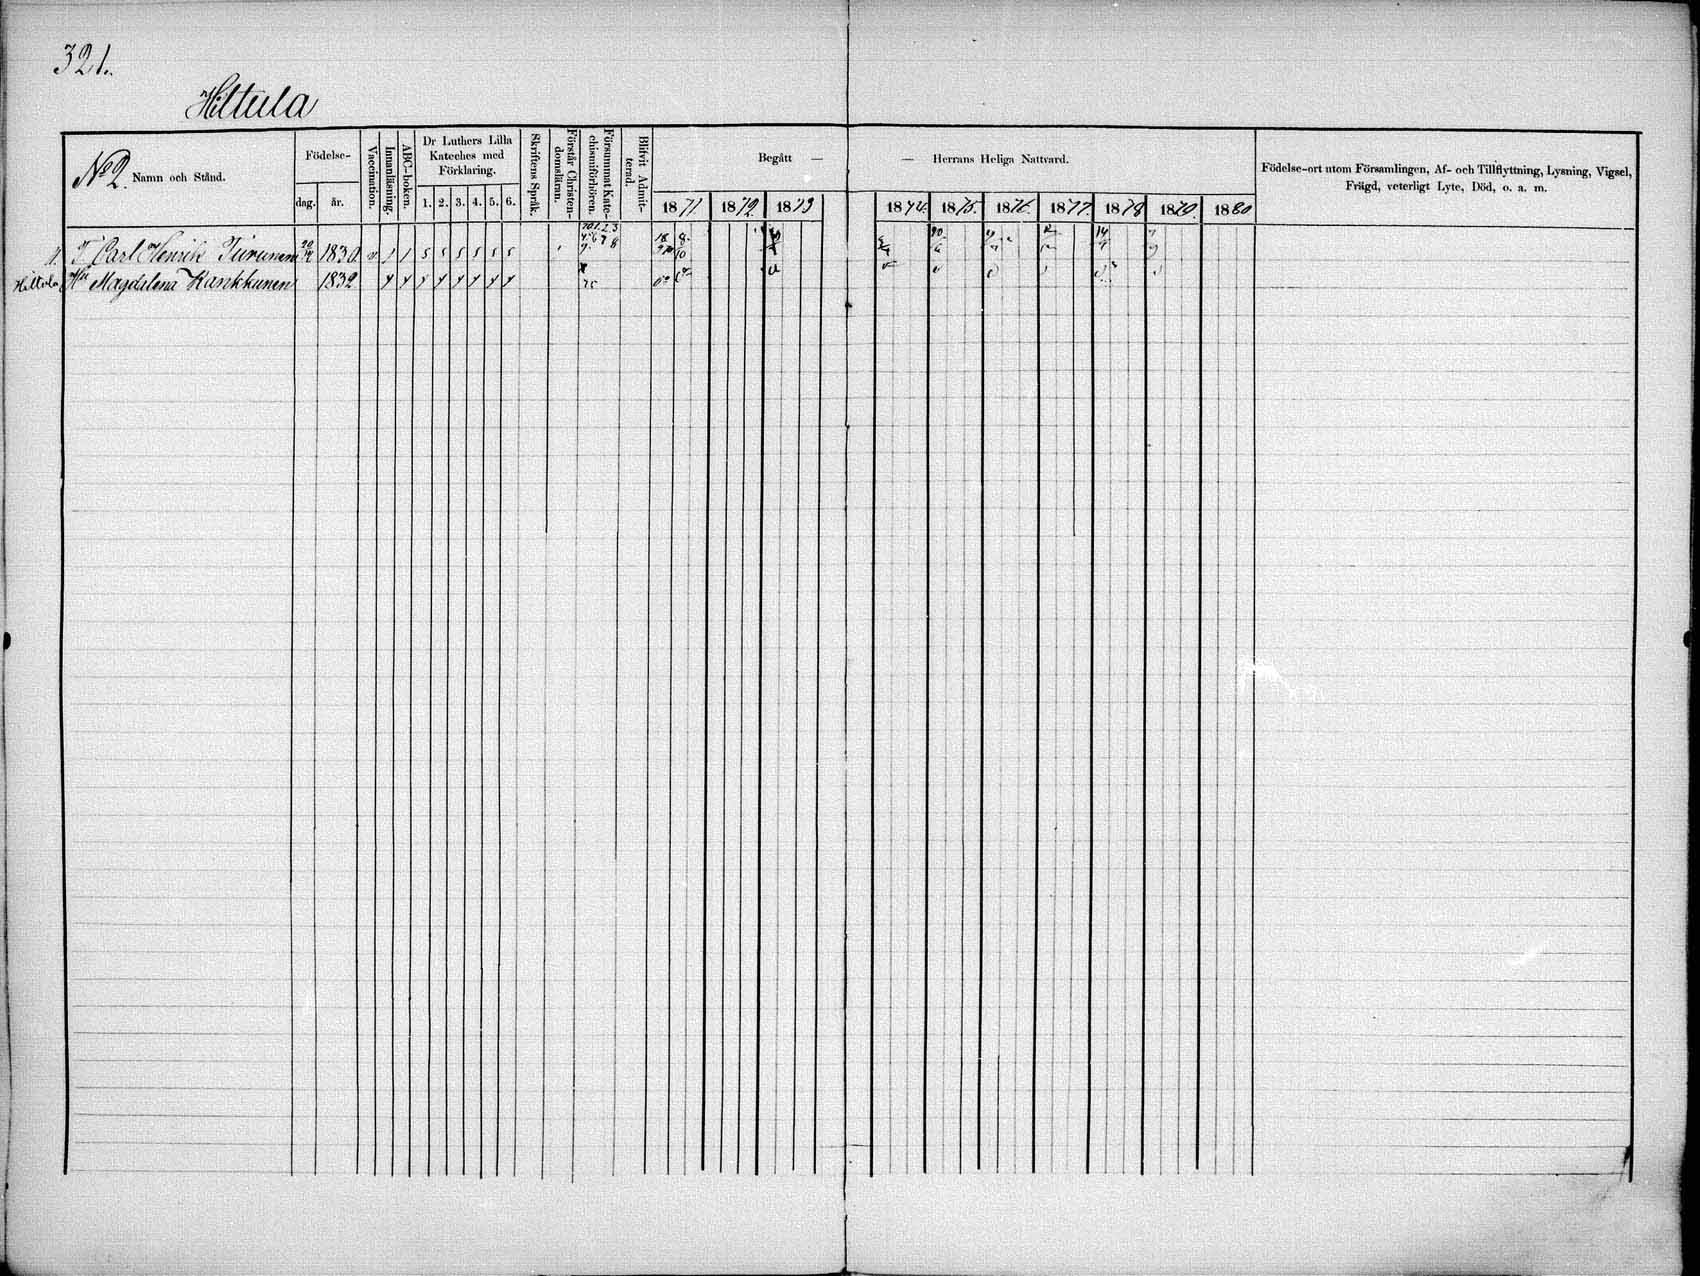 321.
Hiltula
No 2. Namn och Stånd.
Födelse-
dag. år.
Vaccination.
Innanläsning.
ABC-boken.
Dr Luthers Lilla
Kateches med
Förklaring.
1. 2. 3. 4. 5. 6.
Skriftens Språk.
Förstår Christen-
domsläran.
Försummat Kate-
chismiförhören.
Blifvit Admit-
terad.
Begått — — Herrans Heliga Nattvard.
1871. 1872. 1873 1874. 1875. 1876. 1877. 1878 1879. 1880
Födelse-ort utom Församlingen, Af- och Tillflyttning, Lysning, Vigsel,
Frägd, veterligt Lyte, Död, o. a. m.
T Carl Henrik Tiirunen 1830 5 5 5 5 5 5
Hiltula Hu Magdalena Kankkunen 1832